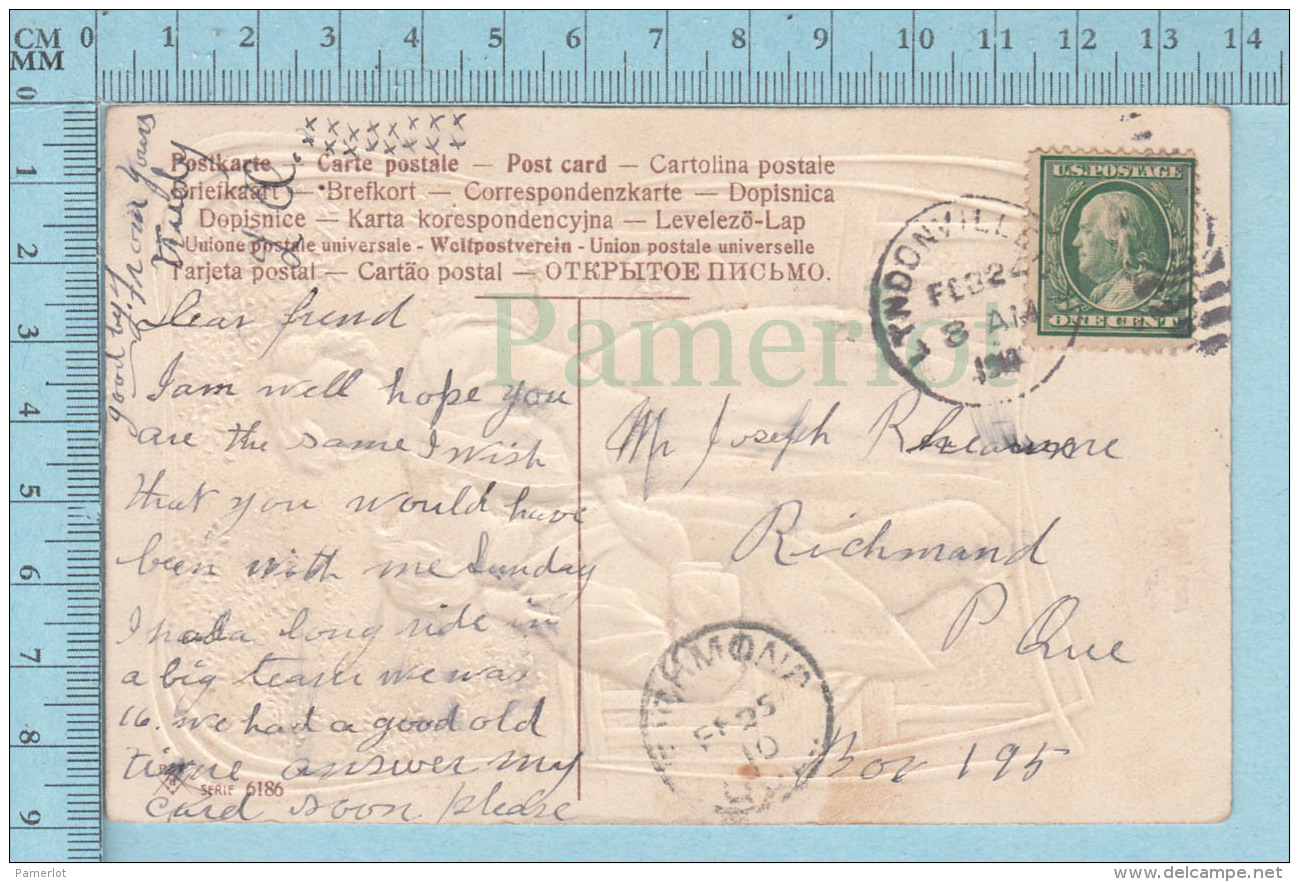 CM 0 1 2 3 4 5 6 7 8 9 10 11 12 13 14
MM
0 1 2 3 4 5 6 7 8 9
Postkarte — Carte postale — Post card — Cartolina postale
Briefkaart — Brefkort — Correspondenzkarte — Dopisnica
Dopisnice — Karta korespondencyjna — Levelező-Lap
Unione postale universale - Weltpostverein - Union postale universelle
Tarjeta postal — Cartão postal — ОТКРЫТОЕ ПИСЬМО.
xx xx xx xx xx xx xx
good by
from yours
Truely
U.S. POSTAGE
ONE CENT
LYNDONVILLE
FEB 24
8 AM
Dear frend
I am well hope you
are the same I wish
that you would have
been with me Sunday
I had a long ride in
a big team we was
16. we had a good old
time answer my
card soon please
Mr Joseph
Richmand
P Que
Box 195
FE 25
10
SERIE 6186
Pamerlot
Pamerlot
delcampe.net